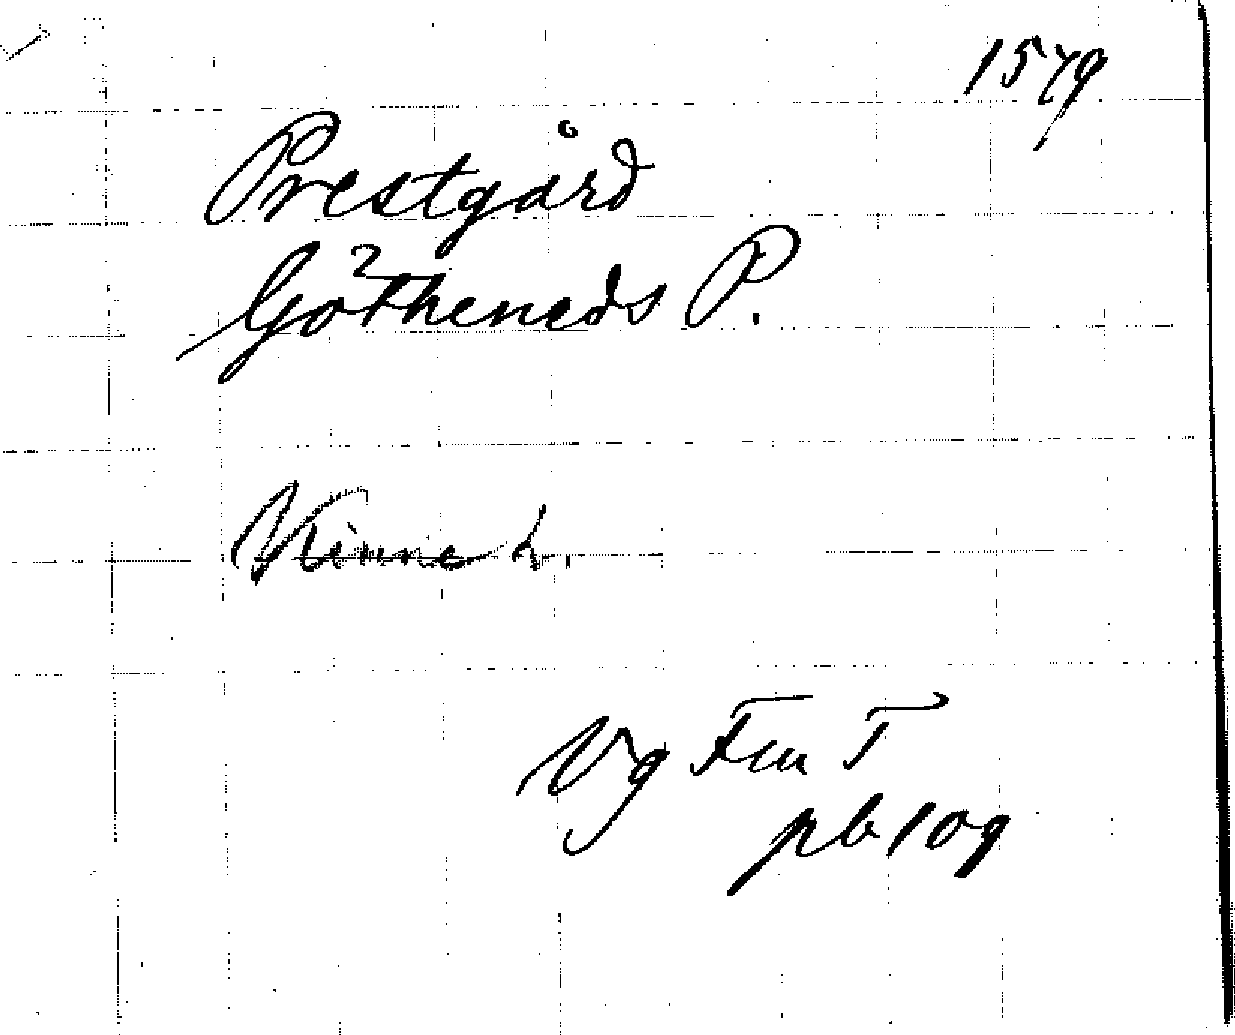 1579
Prestgård
Götheneds P.
Kinne h.
Vg Fm T
pb 109